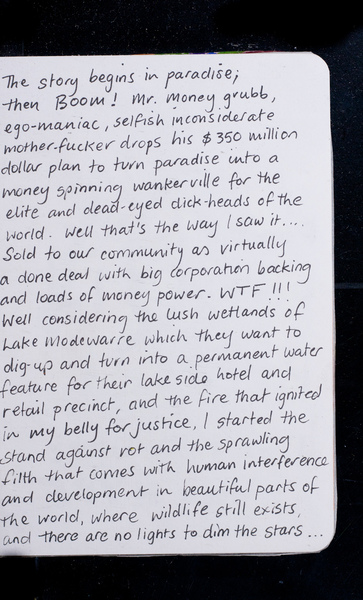 The story begins in paradise;
then Boom! Mr. Money grubb,
ego-maniac, selfish inconsiderate
mother-fucker drops his $350 million
dollar plan to turn paradise into a
money spinning wankerville for the
elite and dead-eyed dick-heads of the
world. Well that's the way I saw it....
Sold to our community as virtually
a done deal with big corporation backing
and loads of money power. WTF!!!
Well considering the lush wetlands of
Lake Modewarre which they want to
dig-up and turn into a permanent water
feature for their lake side hotel and
retail precinct, and the fire that ignited
in my belly for justice, I started the
stand against rot and the sprawling
filth that comes with human interference
and development in beautiful parts of
the world, where wildlife still exists,
and there are no lights to dim the stars...